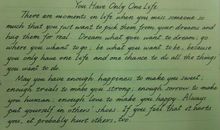 You Have Only One Life
There are moments in life when you miss someone so
much that you just want to pick them from your dreams and
hug them for real. Dream what you want to dream; go
where you want to go; be what you want to be, because
you only have one life and one chance to do all the things
you want to do.
May you have enough happiness to make you sweet,
enough trials to make you strong, enough sorrow to make
you human, enough hope to make you happy. Always
put yourself in others' shoes. If you feel that it hurts
you, it probably hurts others, too.